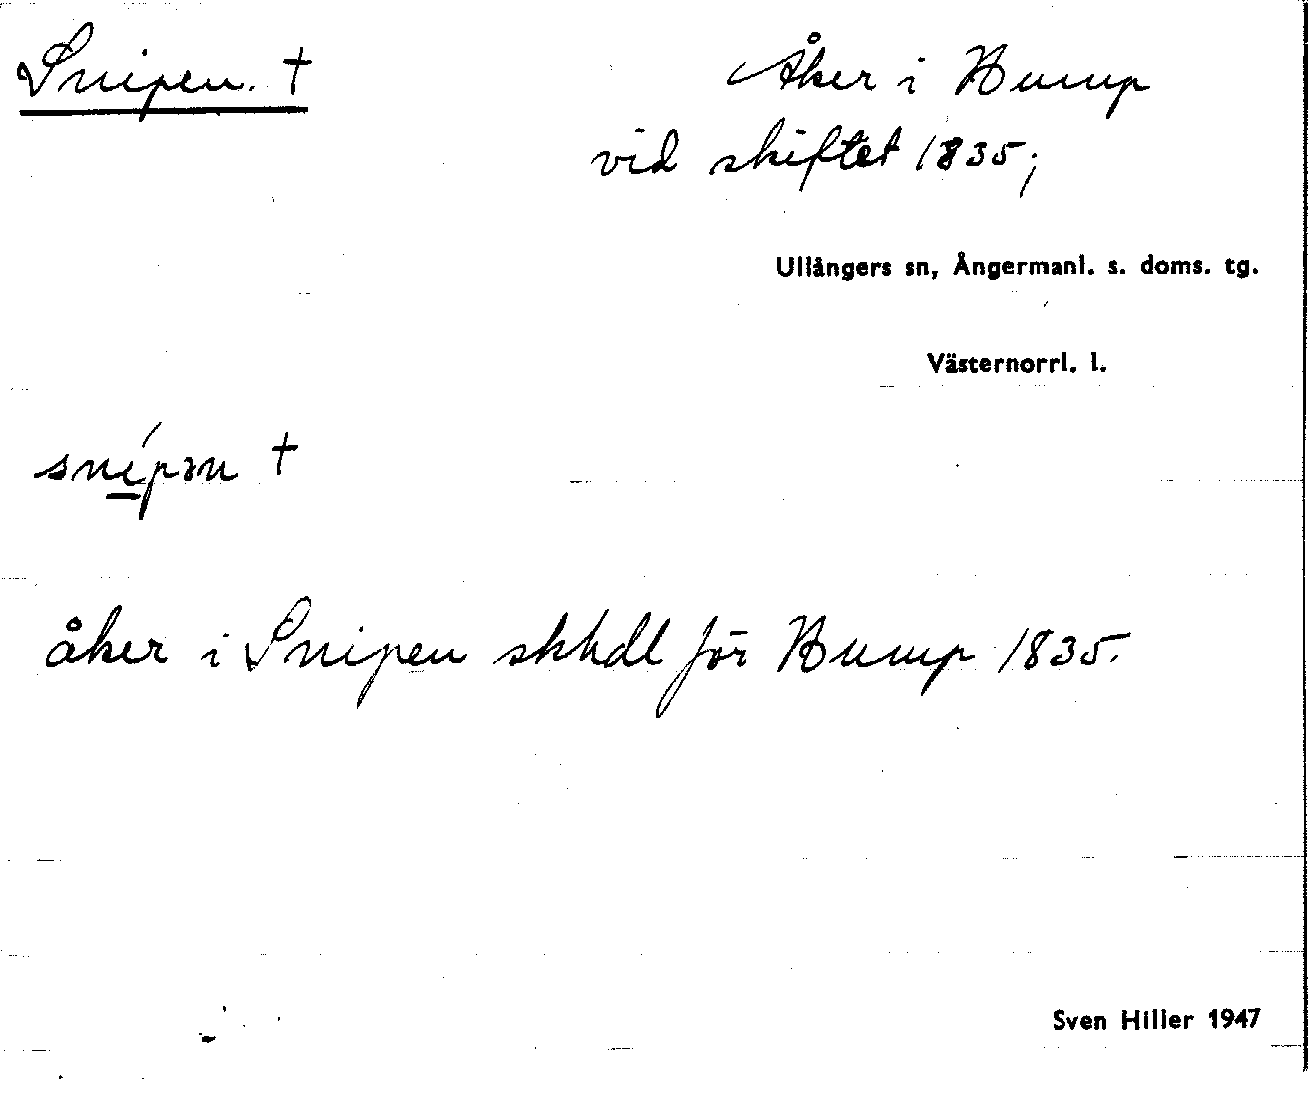 Snipen. †
Åker i Bump
vid skiftet 1835;
Ullångers sn, Ångermanl. s. doms. tg.
Västernorrl. l.
snípən †
åker i Snipen skhdl för Bump 1835.
Sven Hiller 1947